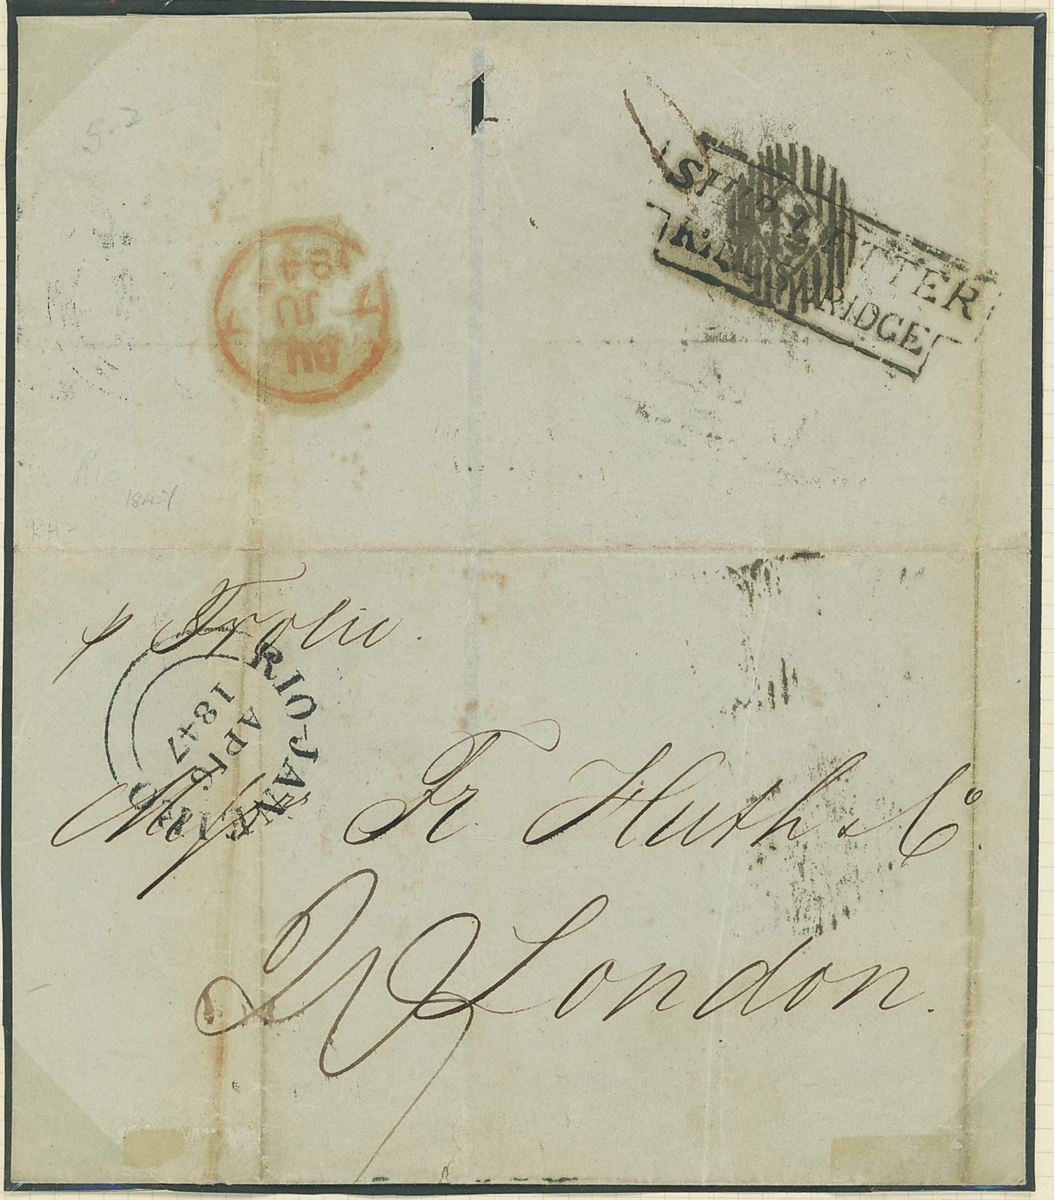 S.2
SHIP LETTER
RIDGE
1847
JU
Rio
1847
KH-
p Frolic.
RIO-JANEIRO
AP16
1847
Messrs Fr. Huth & Co.
London.